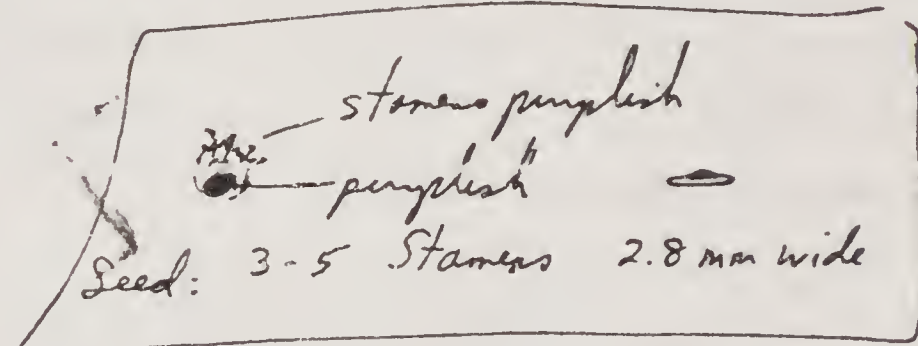 stamens purplish
purplish"
Seed: 3-5 Stamens 2.8 mm wide